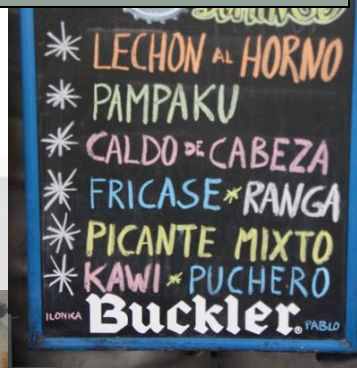 LECHON AL HORNO
PAMPAKU
CALDO DE CABEZA
FRICASE * RANGA
PICANTE MIXTO
KAWI * PUCHERO
ILONKA Buckler® PABLO